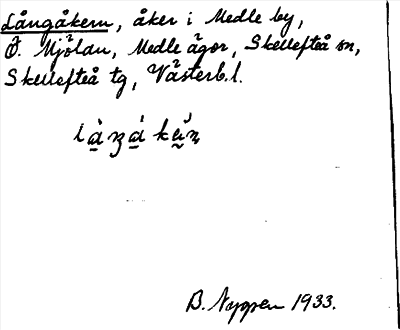 Långåkern, åker i Medle by,
Ö. Mjölan, Medle ägor, Skellefteå sn,
Skellefteå tg, Västerb.l.
1933.